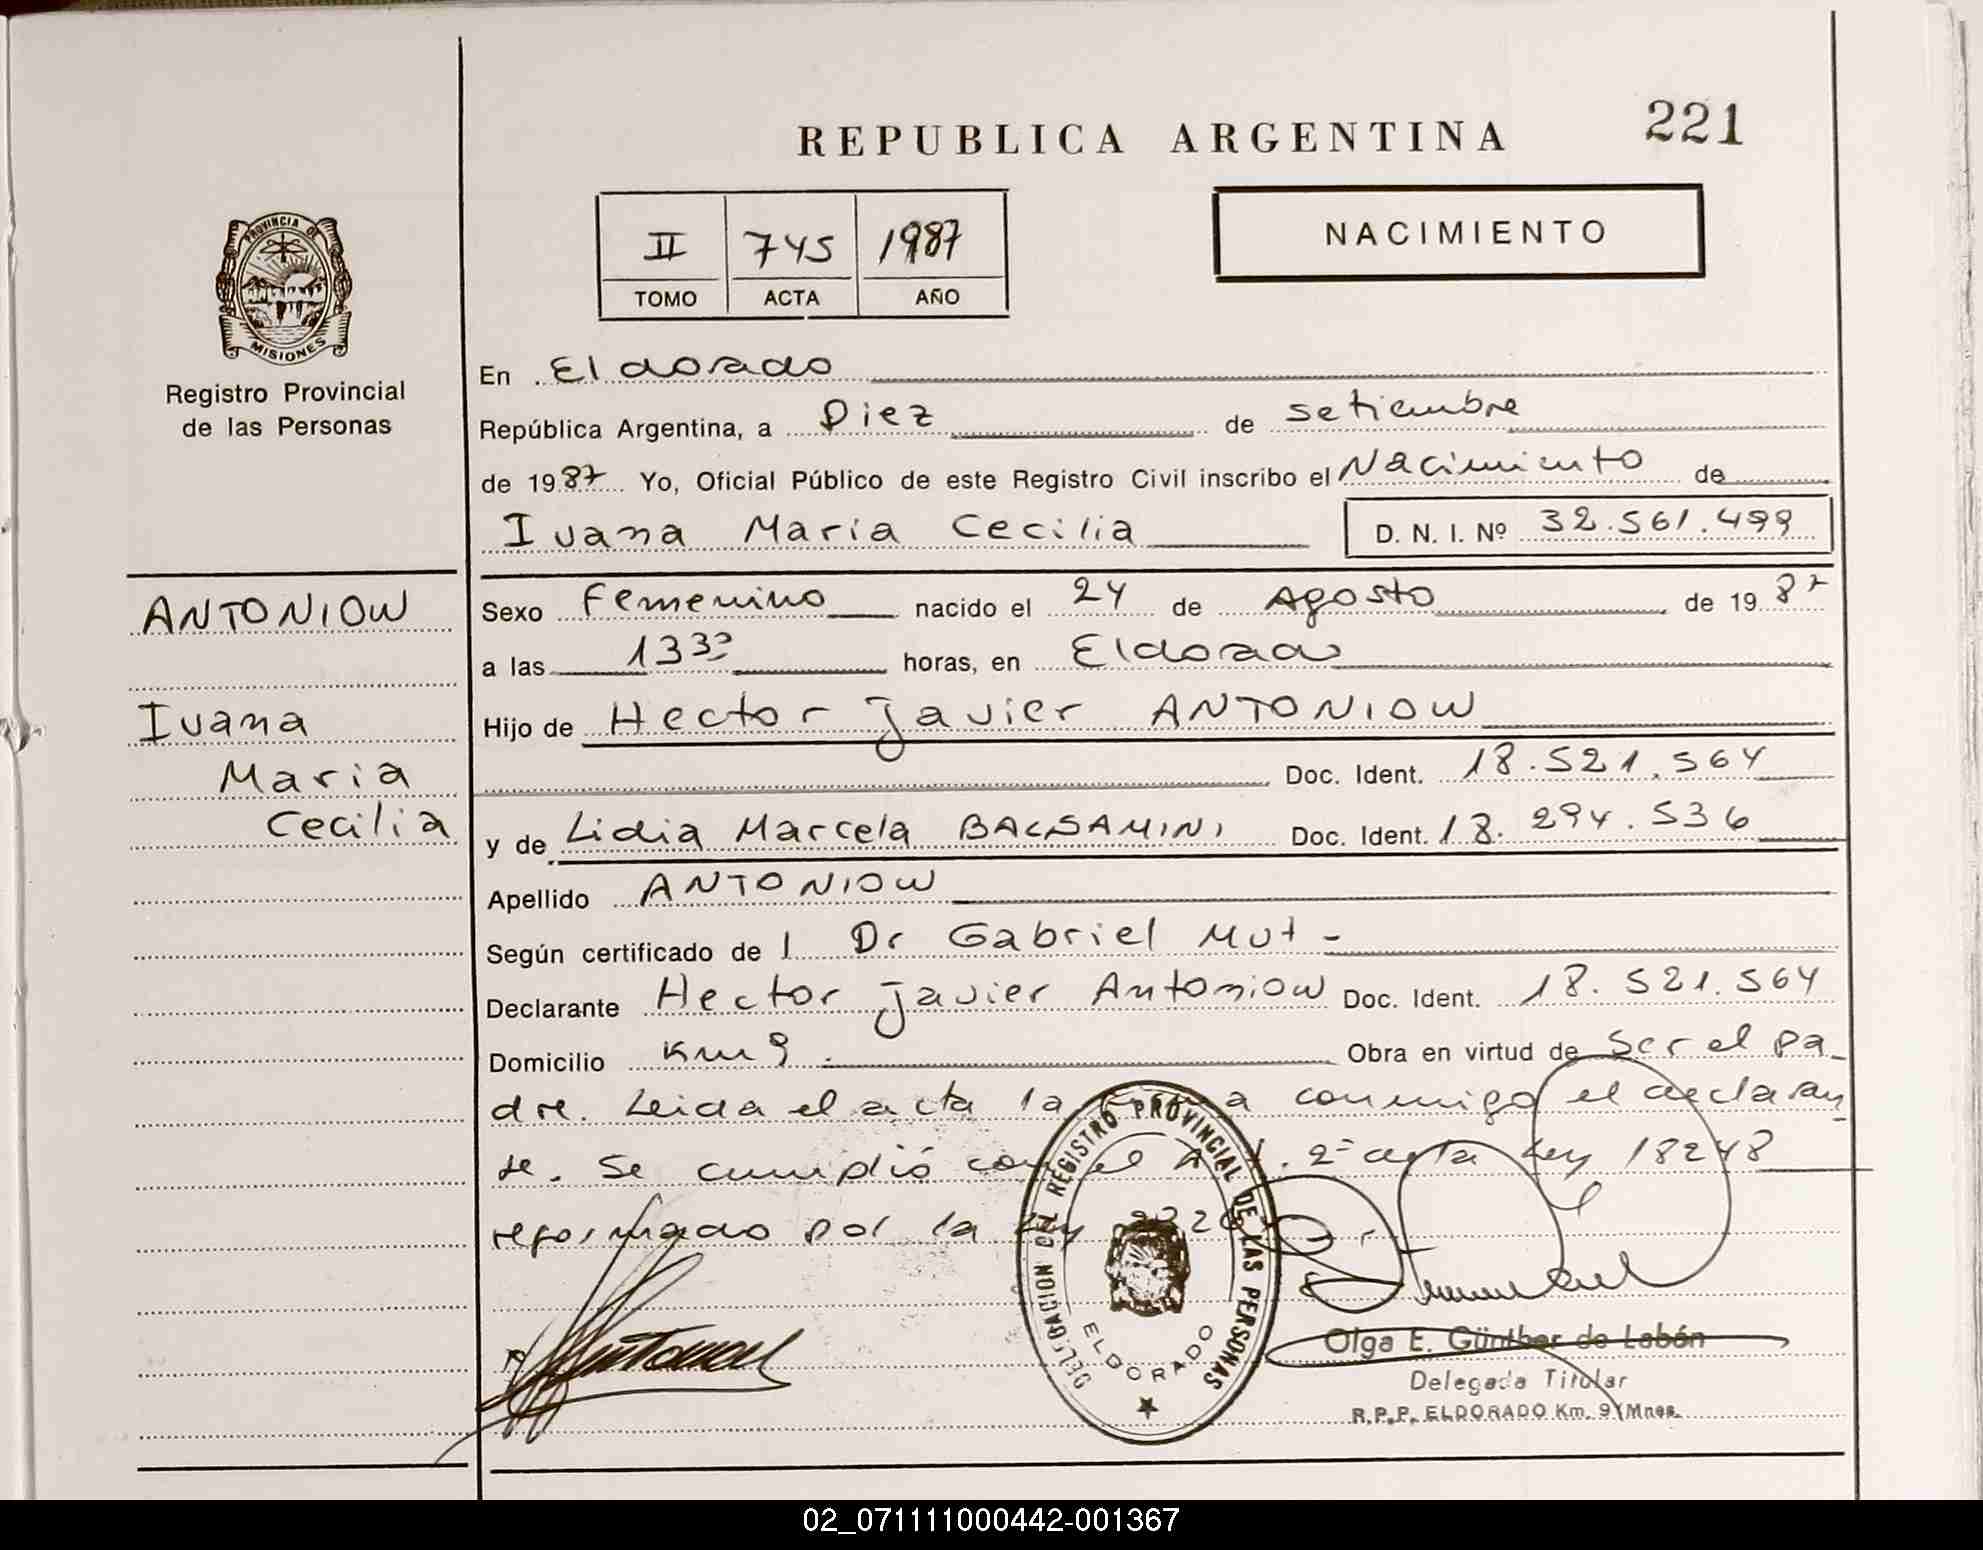 REPUBLICA ARGENTINA
221
II 745 1987
TOMO ACTA AÑO
NACIMIENTO
PROVINCIA DE
MISIONES
Registro Provincial
de las Personas
En Eldorado
República Argentina, a Diez de setiembre
de 1987 Yo, Oficial Público de este Registro Civil inscribo el Nacimiento de
Ivana Maria Cecilia D. N. I. Nº 32.561.499
ANTONIOW
Ivana
Maria
Cecilia
Sexo Femenino nacido el 24 de Agosto de 1987
a las 13 30 horas, en Eldorado
Hijo de Hector Javier ANTONIOW
Doc. Ident. 18.521.564
y de Lidia Marcela BALSAMINI Doc. Ident. 18.294.536
Apellido ANTONIOW
Según certificado de l Dr Gabriel Mut -
Declarante Hector Javier Antoniow Doc. Ident. 18.521.564
Domicilio Km 9 . Obra en virtud de ser el pa_
dre. Leida el acta la firma conmigo el declaran
te. Se cumplió con el 2º Ley 18248
reformado por la Ley
DELEGACION DEL REGISTRO PROVINCIAL DE LAS PERSONAS
ELDORADO
Olga E. Günther de Labán
Delegada Titular
R.P.P. ELDORADO Km. 9 (Mnes.
02_071111000442-001367